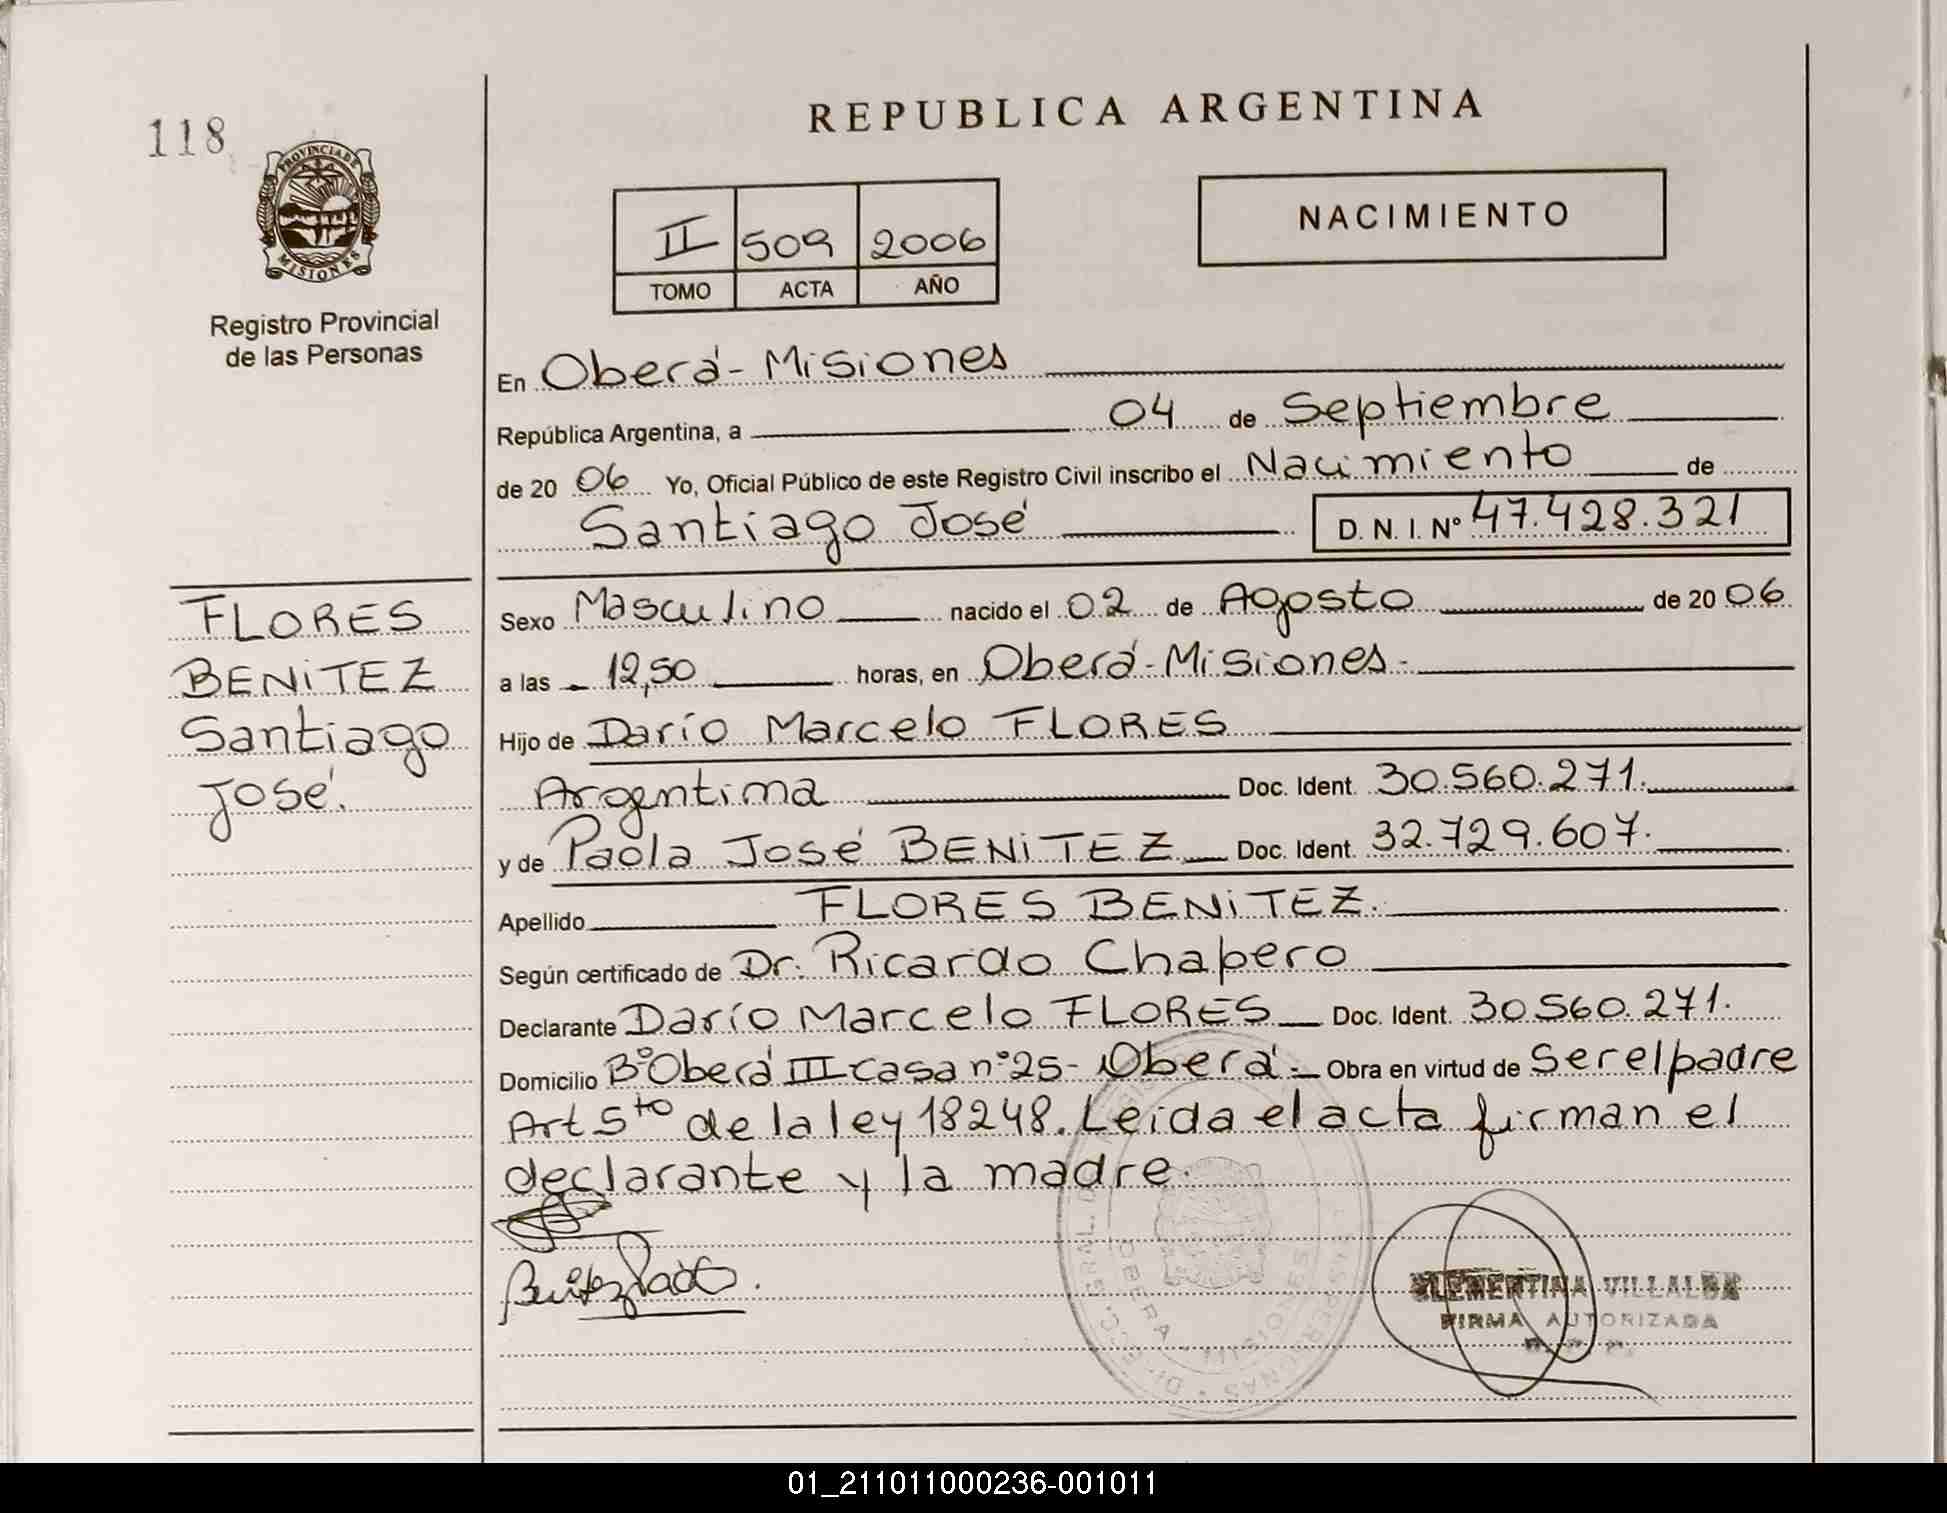 118
PROVINCIA DE
MISIONES
Registro Provincial
de las Personas
REPUBLICA ARGENTINA
II 509 2006
TOMO ACTA AÑO
NACIMIENTO
En Oberá - Misiones
República Argentina, a 04 de Septiembre
de 20 06 Yo, Oficial Público de este Registro Civil inscribo el Nacimiento de
Santiago José D. N. I. Nº 47.428.321
FLORES
BENITEZ
Santiago
José.
Sexo Masculino nacido el 02 de Agosto de 20 06
a las 12,50 horas, en Oberá - Misiones -
Hijo de Darío Marcelo FLORES
Argentina Doc. Ident. 30.560.271.
y de Paola José BENITEZ Doc. Ident. 32.729.607.
Apellido FLORES BENITEZ.
Según certificado de Dr. Ricardo Chapero
Declarante Darío Marcelo FLORES Doc. Ident. 30.560.271.
Domicilio Bº Oberá III casa nº 25 - Oberá - Obra en virtud de Ser el padre
Art 5to de la ley 18248. Leida el acta firman el
declarante y la madre.
CLEMENTINA VILLALBA
FIRMA AUTORIZADA
OBERA MISIONES
01_211011000236-001011